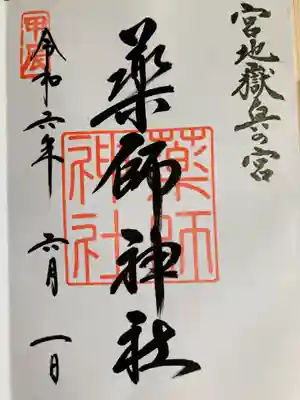 宮地嶽奥の宮
薬師神社
薬師
神社
令和六年 六月 一日